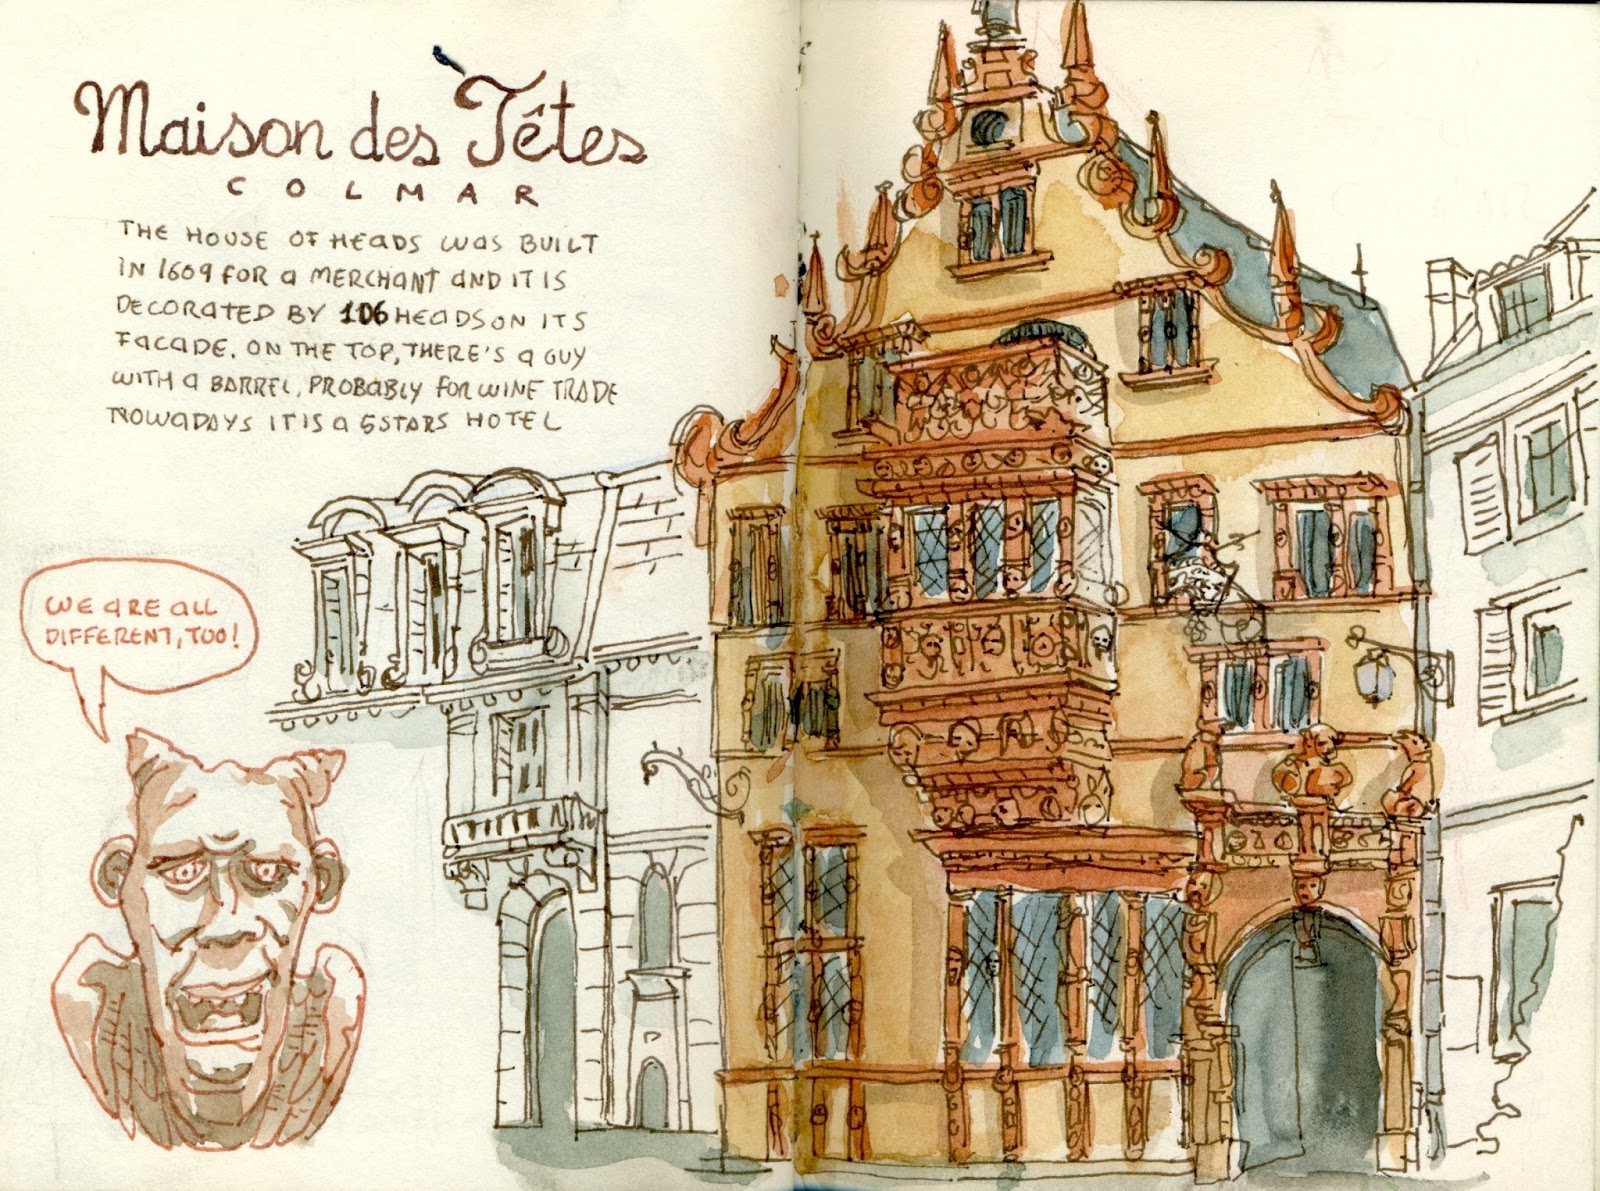 Maison des Têtes
COLMAR
THE HOUSE OF HEADS WAS BUILT
IN 1609 FOR A MERCHANT AND IT IS
DECORATED BY 106 HEADS ON ITS
FACADE. ON THE TOP, THERE'S A GUY
WITH A BARREL, PROBABLY FOR WINE TRADE
NOWADAYS IT IS A 5 STARS HOTEL
WE ARE ALL
DIFFERENT, TOO!